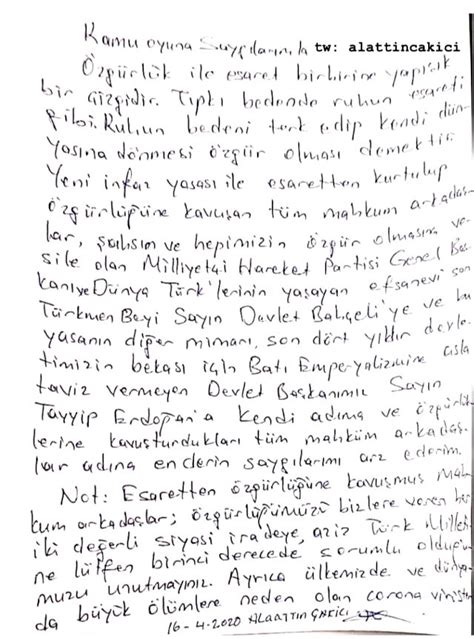 Kamu oyuna Saygılarımla tw: alattincakici
Özgürlük ile esaret birbirine yapışık
bir çizgidir. Tıpkı bedende ruhun esareti
gibi. Ruhun bedeni terk edip kendi dün-
yasına dönmesi özgür olması demektir.
Yeni infaz yasası ile esaretten kurtulup
özgürlüğüne kavuşan tüm mahkum arkadaş-
lar, şahsım ve hepimizin özgür olmasına ve-
sile olan Milliyetçi Hareket Partisi Genel Baş-
kanı ve Dünya Türk'lerinin yaşayan efsanevi son
Türkmen Beyi Sayın Devlet Bahçeli'ye ve bu
yasanın diğer mimarı, son dört yıldır devle-
timizin bekası için Batı Emperyalizmine asla
taviz vermeyen Devlet Başkanımız Sayın
Tayyip Erdoğan'a kendi adıma ve özgürlük-
lerine kavuşturdukları tüm mahküm arkadaş-
lar adına en derin saygılarımı arz ederim.
Not: Esaretten özgürlüğüne kavuşmuş mah-
kum arkadaşlar; özgürlüğümüzü bizlere veren bu
iki değerli siyasi iradeye, aziz Türk Milleti-
ne lütfen birinci derecede sorumlu olduğu-
muzu unutmayınız. Ayrıca ülkemizde ve dünya-
da büyük ölümlere neden olan corona
16-4.2020 ALAATTİN ÇAKICI